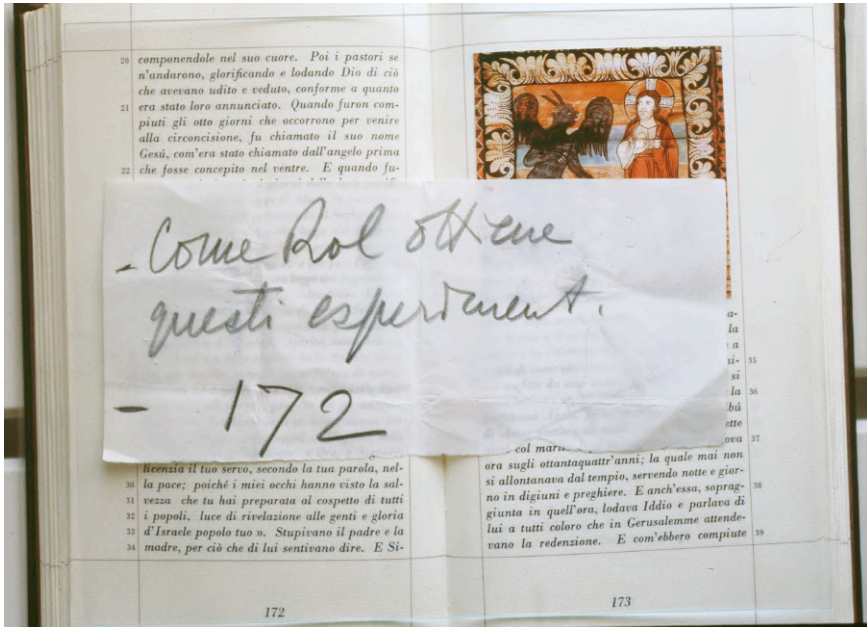 20 componendole nel suo cuore. Poi i pastori se
n'andarono, glorificando e lodando Dio di ciò
che avevano udito e veduto, conforme a quanto
21 era stato loro annunciato. Quando furon com-
piuti gli otto giorni che occorrono per venire
alla circoncisione, fu chiamato il suo nome
Gesú, com'era stato chiamato dall'angelo prima
che fosse concepito nel ventre. E quando fu-
22
- Come Rol ottiene
questi esperiment.
- 172
licenzia il tuo servo, secondo la tua parola, nel-
30 la pace; poiché i miei occhi hanno visto la sal-
31 vezza che tu hai preparata al cospetto di tutti
32 i popoli, luce di rivelazione alle genti e gloria
33 d'Israele popolo tuo ». Stupivano il padre e la
34 madre, per ciò che di lui sentivano dire. E Si-
172
a-
la
a
ui- 35
si
la 36
bú
ette
ova 37
col
ora sugli ottantaquattr'anni; la quale mai non
si allontanava dal tempio, servendo notte e gior-
no in digiuni e preghiere. E anch'essa, soprag- 38
giunta in quell'ora, lodava Iddio e parlava di
lui a tutti coloro che in Gerusalemme attende-
vano la redenzione. E com'ebbero compiute 39
173